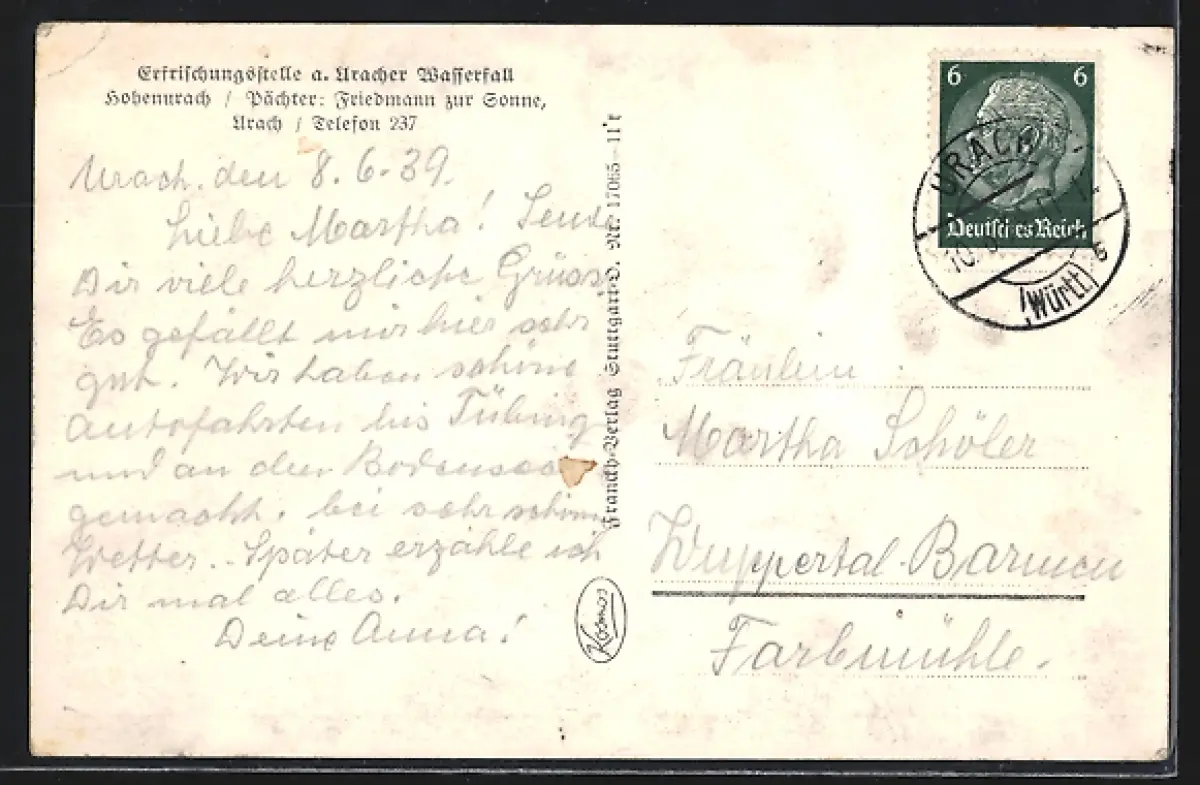 Erfrischungsstelle a. Uracher Wasserfall
Hohenurach / Pächter: Friedmann zur Sonne,
Urach / Telefon 237
Urach, den 8.6.39.
Liebe Martha! Sende
Dir viele herzliche Grüsse
Es gefällt mir hier sehr
gut. Wir haben schöne
Autofahrten bis Tübing
und an den Bodensee
gemacht, bei sehr schönem
Wetter. Später erzähle ich
Dir mal alles.
Deine Anna!
Franckh-Verlag Stuttgart-O. Nr. 17065—11't
Kosmos
6 6
Deutsches Reich
URACH
(Württ)
Fräulein
Martha Schöler
Wuppertal-Barmen
Farbmühle.